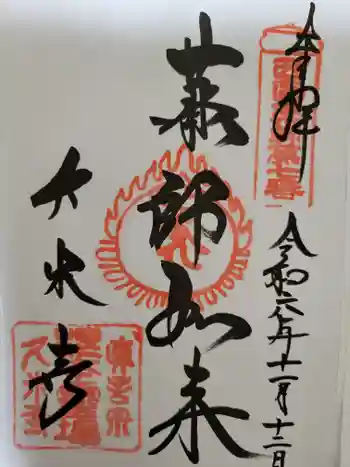 奉拝
令和六年十一月十二日
薬師如来
久米寺